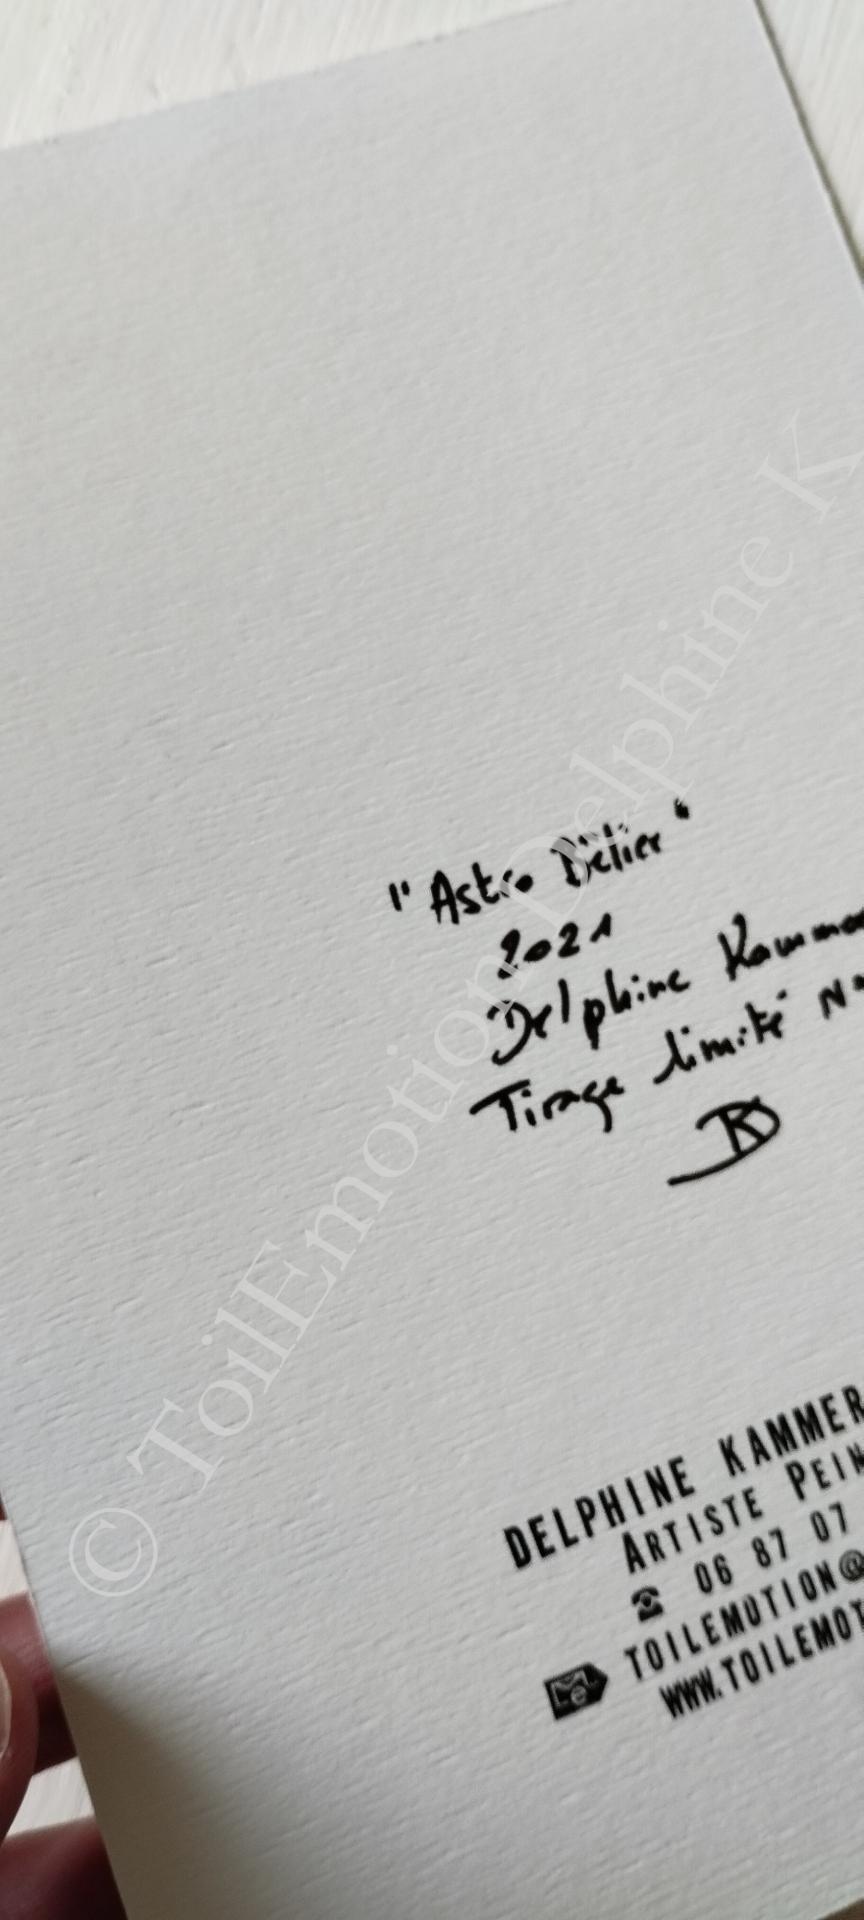 "Astro Bélier"
2021
Delphine Kamme
Tirage limité N°
DK
DELPHINE KAMMER
ARTISTE PEIN
06 87 07
TOILEMOTION@
WWW.TOILEMOT
© ToilEmotion Delphine K